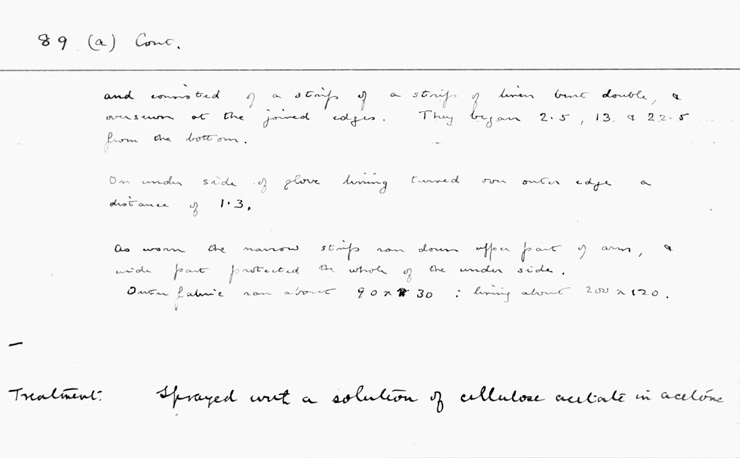 89 (a) Cont.
and consisted of a strip of a strip of linen bent double, &
oversewn at the joined edges. They began 2.5, 13 & 22.5
from the bottom.
On under side of glove lining turned over outer edge a
distance of 1.3.
As worn the narrow strip ran down upper part of arm, &
wide part protected the whole of the under side.
Outer fabric ran about 90 x 30 : lining about 200 x 120.
Treatment: Sprayed with a solution of cellulose acetate in acetone